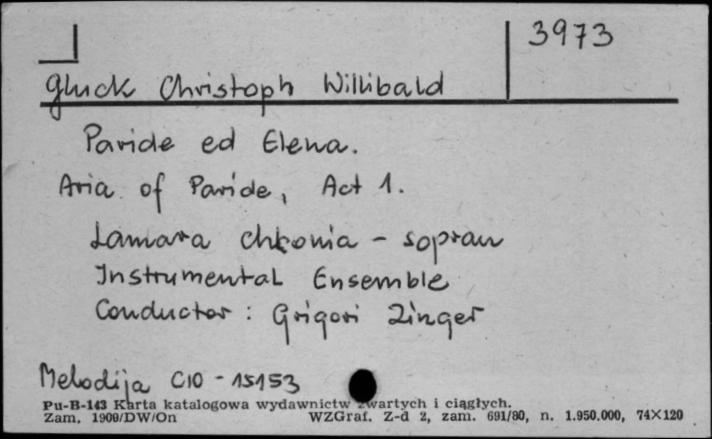 3973
Gluck Christoph Willibald
Paride ed Elena.
Aria of Paride, Act 1.
Lamara Chkonia - sopran
Instrumental Ensemble
Conductor : Grigori Zinger
Melodija C10 - 15153
Pu-B-143 Karta katalogowa wydawnictw zwartych i ciągłych.
Zam. 1909/DW/On WZGraf. Z-d 2, zam. 691/80, n. 1.950.000, 74×120